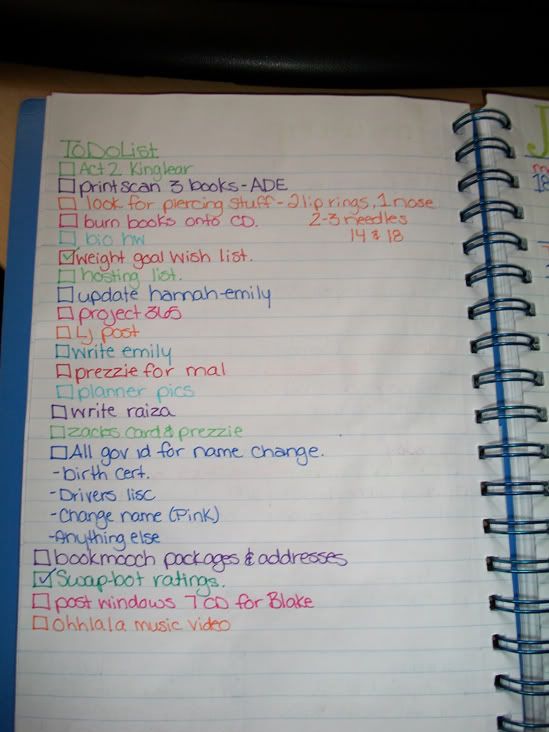 ToDoList
Act 2 Kinglear
printscan 3 books-ADE
look for piercing stuff-2 lip rings, 1 nose
2-3 needles
14 & 18
burn books onto CD.
bio hw
weight goal wish list.
hosting list.
update hannah-emily
project 365
Lj post
write emily
prezzie for mal
planner pics
write raiza
zacbs card & prezzie
All gov id for name change.
-birth cert.
-Drivers lisc
-Change name (Pink)
-Anything else
bookmooch packages & addresses
Swap-bot ratings.
post windows 7 CD for Blake
Ohhlala music video
J
18